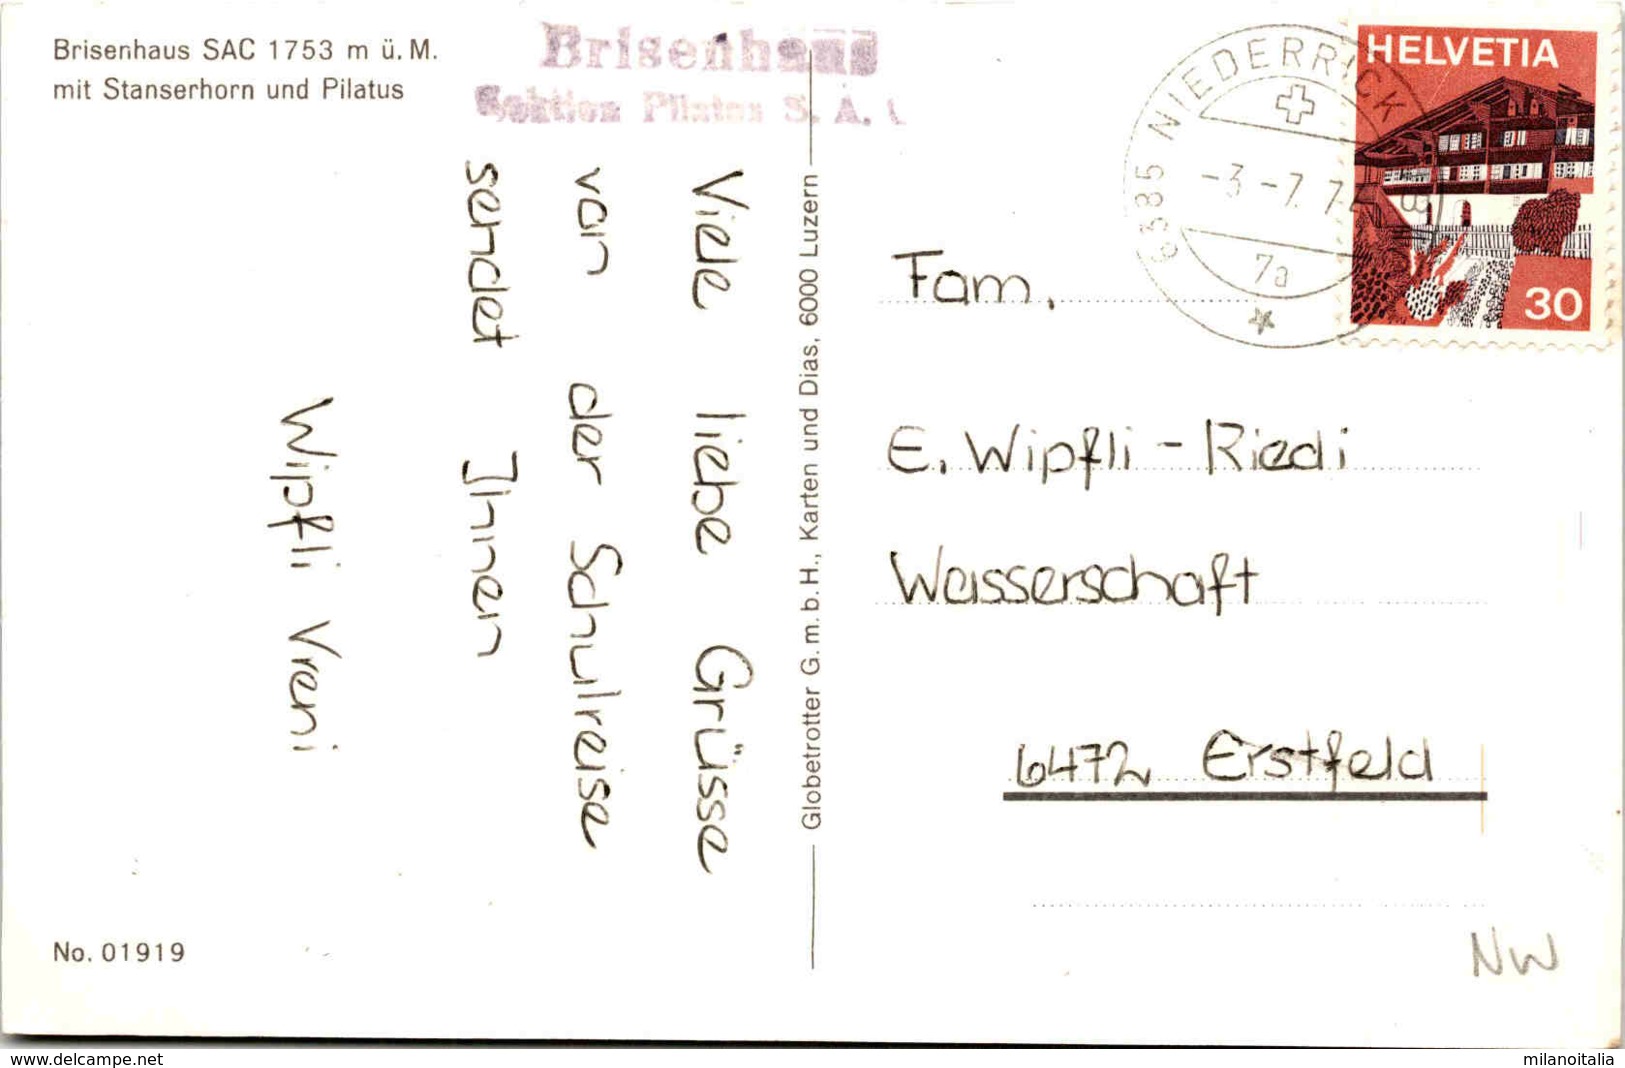 Brisenhaus SAC 1753 m ü. M.
mit Stanserhorn und Pilatus
Brisenhaus
Sektion Pilatus S. A.
Viele liebe Grüsse
von der Schulreise
sendet Ihnen
Wipfli Vreni
No. 01919
Globetrotter G.m.b.H., Karten und Dias, 6000 Luzern
6385 NIEDERRICKENBACH
-3.-7.7
7a
HELVETIA
30
Fam.
E. Wipfli - Riedi
Wasserschaft
6472 Erstfeld
NW
www.delcampe.net
milanoitalia